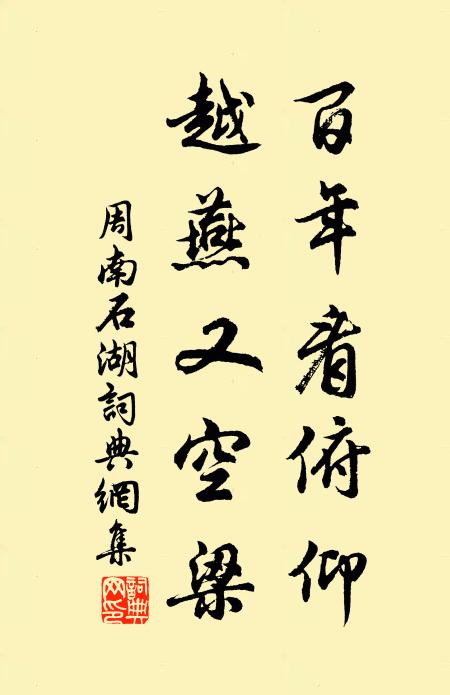 百年看俯仰
越燕又空梁
周南石湖詞典網集
詞典網印